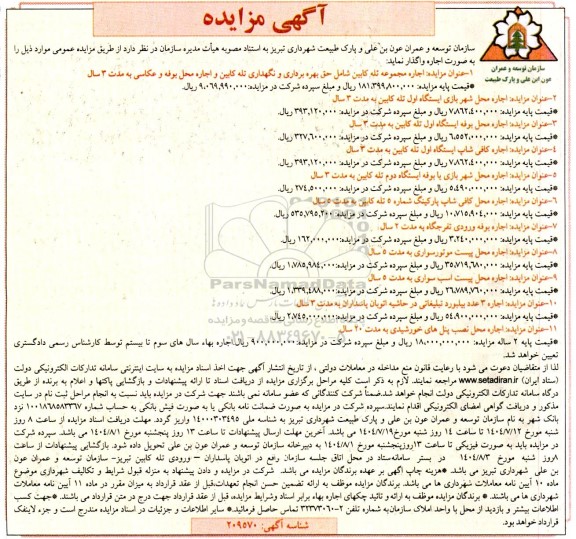 آگهی مزایده
سازمان توسعه و عمران
عون بن علی و پارک طبیعت
سازمان توسعه و عمران عون بن علی و پارک طبیعت شهرداری تبریز به استناد مصوبه هیأت مدیره سازمان در نظر دارد از طریق مزایده عمومی موارد ذیل را
به صورت اجاره واگذار نماید:
۱-عنوان مزایده: اجاره مجموعه تله کابین شامل حق بهره برداری و نگهداری تله کابین و اجاره محل بوفه و عکاسی به مدت ۳ سال
*قیمت پایه مزایده: ۱۸۱،۳۹۹،۸۰۰،۰۰۰ ریال و مبلغ سپرده شرکت در مزایده: ۹،۰۶۹،۹۹۰،۰۰۰ ریال.
۲-عنوان مزایده: اجاره محل شهر بازی ایستگاه اول تله کابین به مدت ۳ سال
*قیمت پایه مزایده: ۷،۸۶۲،۴۰۰،۰۰۰ ریال و مبلغ سپرده شرکت در مزایده: ۳۹۳،۱۲۰،۰۰۰ ریال.
۳-عنوان مزایده: اجاره محل بوفه ایستگاه اول تله کابین به مدت ۳ سال
*قیمت پایه مزایده: ۶،۵۵۲،۰۰۰،۰۰۰ ریال و مبلغ سپرده شرکت در مزایده: ۳۲۷،۶۰۰،۰۰۰ ریال.
۴-عنوان مزایده: اجاره کافی شاپ ایستگاه اول تله کابین به مدت ۳ سال
*قیمت پایه مزایده: ۷،۸۶۲،۴۰۰،۰۰۰ ریال و مبلغ سپرده شرکت در مزایده: ۳۹۳،۱۲۰،۰۰۰ ریال.
۵-عنوان مزایده: اجاره محل شهر بازی با بوفه ایستگاه دوم تله کابین به مدت ۳ سال
*قیمت پایه مزایده: ۵،۴۹۰،۰۰۰،۰۰۰ ریال و مبلغ سپرده شرکت در مزایده: ۲۷۴،۵۰۰،۰۰۰ ریال.
۶-عنوان مزایده: اجاره محل کافی شاپ پارکینگ شماره ۵ تله کابین به مدت ۵ سال
*قیمت پایه مزایده: ۱۰،۷۱۵،۹۰۴،۰۰۰ ریال و مبلغ سپرده شرکت در مزایده: ۵۳۵،۷۹۵،۲۰۰ ریال.
۷-عنوان مزایده: اجاره بوفه ورودی تفرجگاه به مدت ۲ سال
*قیمت پایه مزایده: ۳،۲۴۰،۰۰۰،۰۰۰ ریال و مبلغ سپرده شرکت در مزایده: ۱۶۲،۰۰۰،۰۰۰ ریال.
۸-عنوان مزایده: اجاره محل پیست موتورسواری به مدت ۵ سال
*قیمت پایه مزایده: ۳۵،۷۱۹،۶۸۰،۰۰۰ ریال و مبلغ سپرده شرکت در مزایده: ۱،۷۸۵،۹۸۴،۰۰۰ ریال.
۹-عنوان مزایده: اجاره محل پیست اسب سواری به مدت ۵ سال
*قیمت پایه مزایده: ۲۶،۷۸۹،۷۶۰،۰۰۰ ریال و مبلغ سپرده شرکت در مزایده: ۱،۳۳۹،۴۸۸،۰۰۰ ریال.
۱۰-عنوان مزایده: اجاره ۳ عدد بیلبورد تبلیغاتی در حاشیه اتوبان پاسداران به مدت ۳ سال
*قیمت پایه مزایده: ۵۴،۹۰۰،۰۰۰،۰۰۰ ریال و مبلغ سپرده شرکت در مزایده: ۲،۷۴۵،۰۰۰،۰۰۰ ریال.
۱۱-عنوان مزایده: اجاره محل نصب پنل های خورشیدی به مدت ۲۰ سال
*قیمت پایه ۲ ساله مزایده: ۱۸،۰۰۰،۰۰۰،۰۰۰ ریال و مبلغ سپرده شرکت در مزایده: ۹۰۰،۰۰۰،۰۰۰ ریال. اجاره بهاء سال های سوم تا بیستم توسط کارشناس رسمی دادگستری
تعیین خواهد شد.
لذا از متقاضیان دعوت می شود با رعایت قانون منع مداخله در معاملات دولتی ، از تاریخ انتشار آگهی جهت اخذ اسناد مزایده به سایت اینترنتی سامانه تدارکات الکترونیکی دولت
(ستاد ایران) www.setadiran.ir مراجعه نمایند. لازم به ذکر است کلیه مراحل برگزاری مزایده از دریافت اسناد تا ارائه پیشنهادات و بازگشایی پاکتها و اعلام به برنده از طریق
درگاه سامانه تدارکات الکترونیکی دولت انجام خواهد شد.ضمناً شرکت کنندگانی که عضو سامانه نمی باشند جهت شرکت در مزایده باید نسبت به انجام مراحل ثبت نام در سایت
مذکور و دریافت گواهی امضای الکترونیکی اقدام نمایند.سپرده شرکت در مزایده به صورت ضمانت نامه بانکی یا به صورت فیش بانکی به حساب شماره ۱۰۰۱۸۶۸۵۵۳۶۷ نزد
بانک شهر به نام سازمان توسعه و عمران عون بن علی و پارک طبیعت شهرداری تبریز به شناسه ملی ۱۴۰۰۰۳۰۳۴۹۵ واریز گردد. مهلت دریافت اسناد مزایده از ساعت ۸ روز
شنبه مورخ ۱۴۰۴/۷/۱۲ تا ساعت ۱۴ روز شنبه مورخ ۱۴۰۴/۷/۱۹ می باشد. آخرین مهلت ارسال پیشنهادات تا ساعت ۱۳ روز پنجشنبه مورخ ۱۴۰۴/۸/۱ می باشد. سپرده شرکت
در مزایده باید به صورت فیزیکی تا ساعت ۱۳ روز پنجشنبه مورخ ۱۴۰۴/۸/۱ به دبیرخانه سازمان توسعه و عمران عون بن علی تحویل داده شود. بازگشایی پیشنهادات از ساعت
۸ روز شنبه مورخ ۱۴۰۴/۸/۳ در بستر سامانه ستاد در محل اتاق جلسه سازمان: واقع در اتوبان پاسداران – ورودی تله کابین تبریز– سازمان توسعه و عمران عون
بن علی شهرداری تبریز می باشد. *هزینه چاپ آگهی بر عهده برندگان مزایده می باشد. شرکت در مزایده و دادن پیشنهاد به منزله قبول شرایط و تکالیف شهرداری موضوع
ماده ۱۰ آیین نامه معاملات شهرداری ها می باشد. برندگان مزایده موظف به ارائه تضمین حسن انجام تعهدات،قبل از عقد قرارداد به میزان مقرر در ماده ۱۱ آیین نامه معاملات
شهرداری ها می باشند. *برندگان مزایده موظف به ارائه و تائید چکهای اجاره بهاء برابر اسناد وشرایط مزایده، قبل از عقد قرارداد جهت درج در متن قرارداد می باشند. *جهت کسب
اطلاعات بیشتر و بازدید از محل با واحد املاک سازمان به شماره تلفن ۲-۳۲۳۷۳۰۶۰ تماس حاصل فرمائید.* سایر اطلاعات و جزئیات در اسناد مزایده مندرج است و جزء لاینفک
قرارداد خواهد بود.
شناسه آگهی: ۲۰۹۵۷۰
ParsNamadData
۰۲۱-۸۸۳۴۹۶۷۰